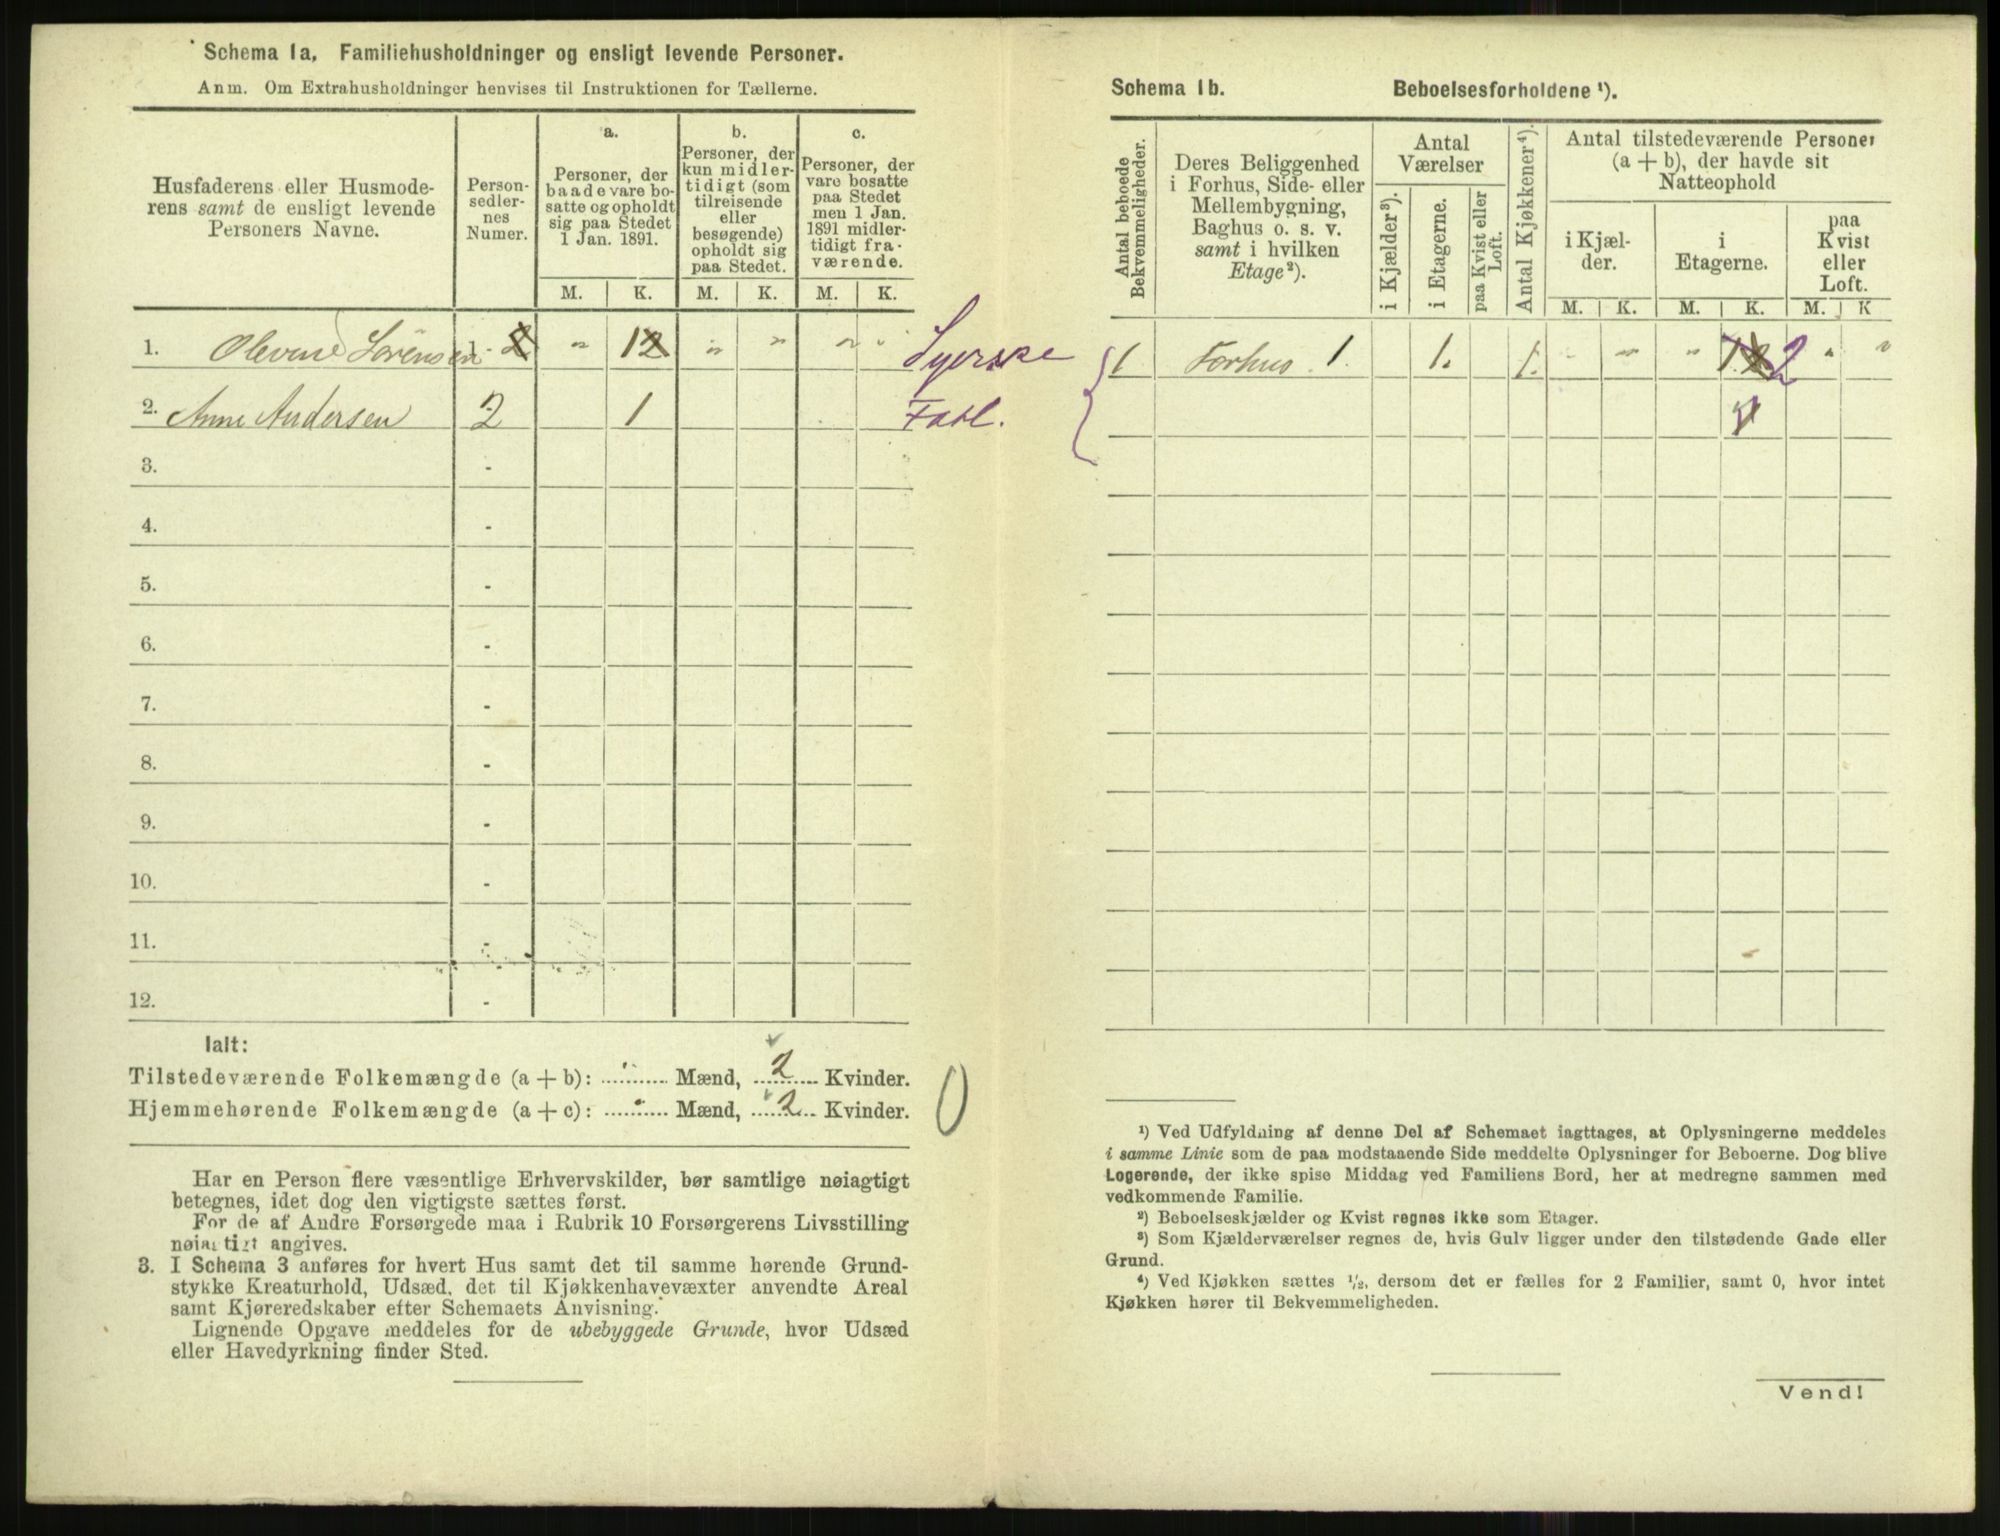 Schema 1a. Familiehusholdninger og ensligt levende Personer.
Anm. Om Extrahusholdninger henvises til Instruktionen for Tællerne.
Husfaderens eller Husmode-
rens samt de ensligt levende
Personers Navne.
Person-
sedler-
nes
Numer.
a.
Personer, der
baade vare bo-
satte og opholdt
sig paa Stedet
1 Jan. 1891.
b.
Personer, der
kun midler-
tidigt (som
tilreisende
eller
besøgende)
opholdt sig
paa Stedet.
c.
Personer, der
vare bosatte
paa Stedet
men 1 Jan.
1891 midler-
tidigt fra-
værende.
M. K. M. K. M. K.
1. Olevine Sörensen 1 - 2 " 12 " " " " Syerske
2. Anne Andersen 2 1 Fabl.
3. -
4. -
5. -
6. -
7. -
8. -
9. -
10. -
11. -
12. -
Ialt:
Tilstedeværende Folkemængde (a + b): ............ Mænd, 2 Kvinder.
Hjemmehørende Folkemængde (a + c): ............ Mænd, 2 Kvinder.
0
Har en Person flere væsentlige Erhvervskilder, bør samtlige nøiagtigt
betegnes, idet dog den vigtigste sættes først.
For de af Andre Forsørgede maa i Rubrik 10 Forsørgerens Livsstilling
nøiagtigt angives.
3. I Schema 3 anføres for hvert Hus samt det til samme hørende Grund-
stykke Kreaturhold, Udsæd, det til Kjøkkenhavevæxter anvendte Areal
samt Kjøreredskaber efter Schemaets Anvisning.
Lignende Opgave meddeles for de ubebyggede Grunde, hvor Udsæd
eller Havedyrkning finder Sted.
Schema 1b. Beboelsesforholdene ¹).
Antal beboede
Bekvemmeligheder.
Deres Beliggenhed
i Forhus, Side- eller
Mellembygning,
Baghus o. s. v.
samt i hvilken
Etage²).
Antal
Værelser
i Kjælder³).
i Etagerne.
paa Kvist eller
Loft.
Antal Kjøkkener⁴).
Antal tilstedeværende Personer
(a + b), der havde sit
Natteophold
i Kjæl-
der.
i
Etagerne.
paa
Kvist
eller
Loft.
M. K. M. K. M. K
1 Forhus 1. 1. 1. " " " 12 2 " "
1
¹) Ved Udfyldning af denne Del af Schemaet iagttages, at Oplysningerne meddeles
i samme Linie som de paa modstaaende Side meddelte Oplysninger for Beboerne. Dog blive
Logerende, der ikke spise Middag ved Familiens Bord, her at medregne sammen med
vedkommende Familie.
²) Beboelseskjælder og Kvist regnes ikke som Etager.
³) Som Kjælderværelser regnes de, hvis Gulv ligger under den tilstødende Gade eller
Grund.
⁴) Ved Kjøkken sættes ½, dersom det er fælles for 2 Familier, samt 0, hvor intet
Kjøkken hører til Bekvemmeligheden.
Vend!